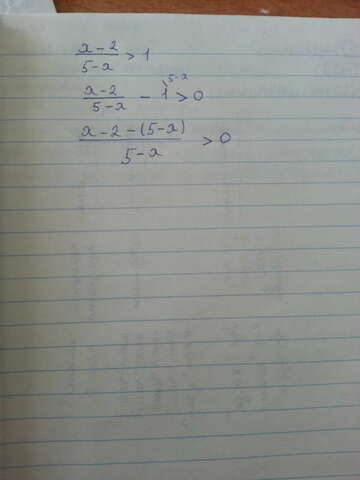 x-2/5-x > 1
x-2/5-x - 1^{5-x} > 0
x-2-(5-x)/5-x > 0